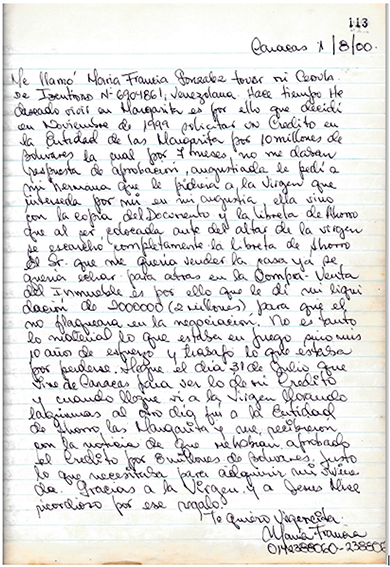 113
Caracas 1/8/00.
Me llamó Maria Francia Gonzalez tovar mi Cedula
De Identidad Nº 6904861, Venezolana. Hace tiempo He
deseado vivir en Margarita es por ello que decidí
en Noviembre de 1999 solicitar un Credito en
la Entidad de las Margarita por 10 millones de
Bolivares la cual por 7 meses no me daban
respuesta de aprobacion, angustiada le pedi a
mi hermana que le pidiera a la Virgen que
interceda por mi en mi angustia, ella vino
con la copia del Documento y la libreta de Ahorro
que al ser colocada ante del altar de la virgen
se escarchó completamente la libreta de Ahorro
el Sr. que me queria vender la casa ya se
queria echar para atras en la Compra-Venta
del Inmueble es por ello que le di mi liqui
dación de 2000000 (2 millones), para que el
no flaqueara en la negociacion. No es tanto
lo material lo que estaba en juego sino mis
10 años de esfuerzo y trabajo lo que estaba
por perderse. Llegue el dia 31 de Julio que
vine de Caracas para ver lo de mi Credito
y cuando llegue vi a la Virgen llorando
lagrimas al otro dia fui a la Entidad
de Ahorro las Margarita y me recibieron
con la noticia de que me habian aprobado
el Credito por 8 millones de Bolivares. Justo
lo que necesitaba para adquirir mi vivien
da. Gracias a la Virgen y a Jesus Mise
ricordioso por ese regalo!
Te quiero Virgencita
Maria Francia